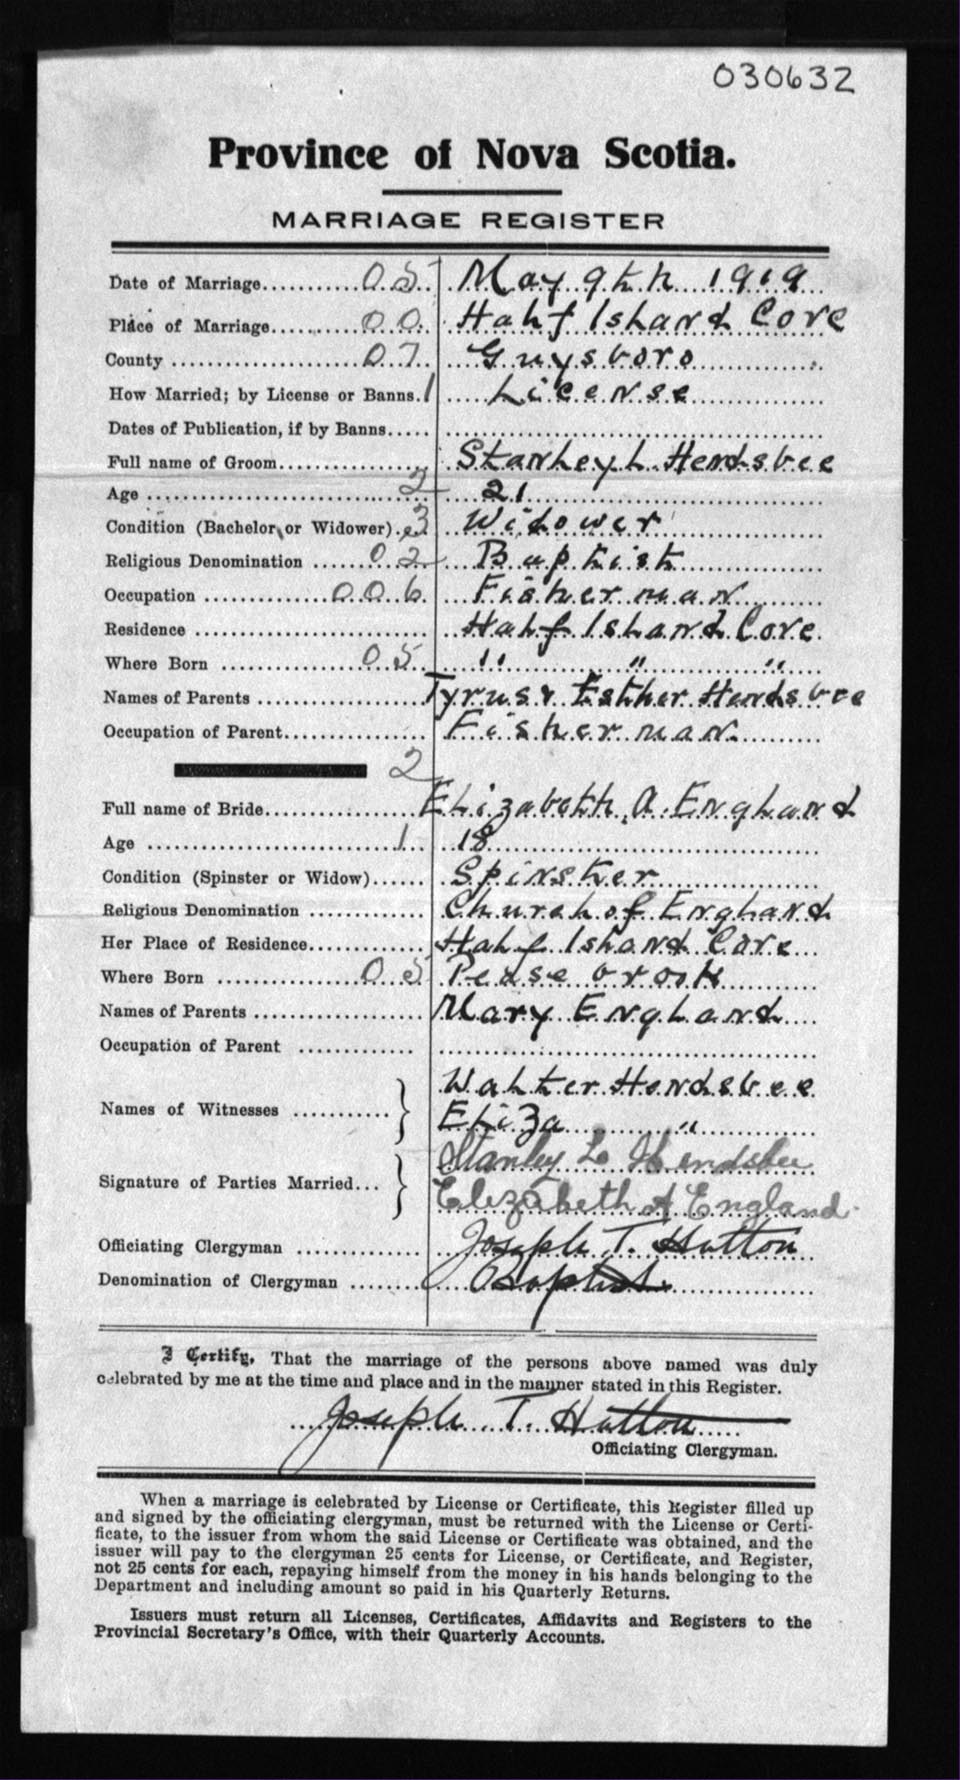 030632
Province of Nova Scotia.
MARRIAGE REGISTER
Date of Marriage 05 May 9th 1919
Place of Marriage 00 Half Island Cove
County 07 Guysboro
How Married; by License or Banns. 1 License
Dates of Publication, if by Banns
Full name of Groom Stanley L. Hendsbee
Age 2 21
Condition (Bachelor or Widower) 3 Widower
Religious Denomination 02 Baptist
Occupation 006 Fisherman
Residence Half Island Cove.
Where Born 05 " " "
Names of Parents Tyrus & Esther Hendsbee
Occupation of Parent Fisherman.
2
Full name of Bride Elizabeth A. England
Age 1 18
Condition (Spinster or Widow) Spinster
Religious Denomination Church of England
Her Place of Residence Half Island Cove
Where Born 05 Pease brook
Names of Parents Mary England
Occupation of Parent
Walter Hendsbee
Names of Witnesses } Eliza "
Stanley L Hendsbee
Signature of Parties Married... } Elizabeth A England
Officiating Clergyman Joseph T. Hutton
Denomination of Clergyman Baptist.
I Certify, That the marriage of the persons above named was duly
celebrated by me at the time and place and in the manner stated in this Register.
Joseph T. Hutton
Officiating Clergyman.
When a marriage is celebrated by License or Certificate, this Register filled up
and signed by the officiating clergyman, must be returned with the License or Certi-
ficate, to the issuer from whom the said License or Certificate was obtained, and the
issuer will pay to the clergyman 25 cents for License, or Certificate, and Register,
not 25 cents for each, repaying himself from the money in his hands belonging to the
Department and including amount so paid in his Quarterly Returns.
Issuers must return all Licenses, Certificates, Affidavits and Registers to the
Provincial Secretary's Office, with their Quarterly Accounts.